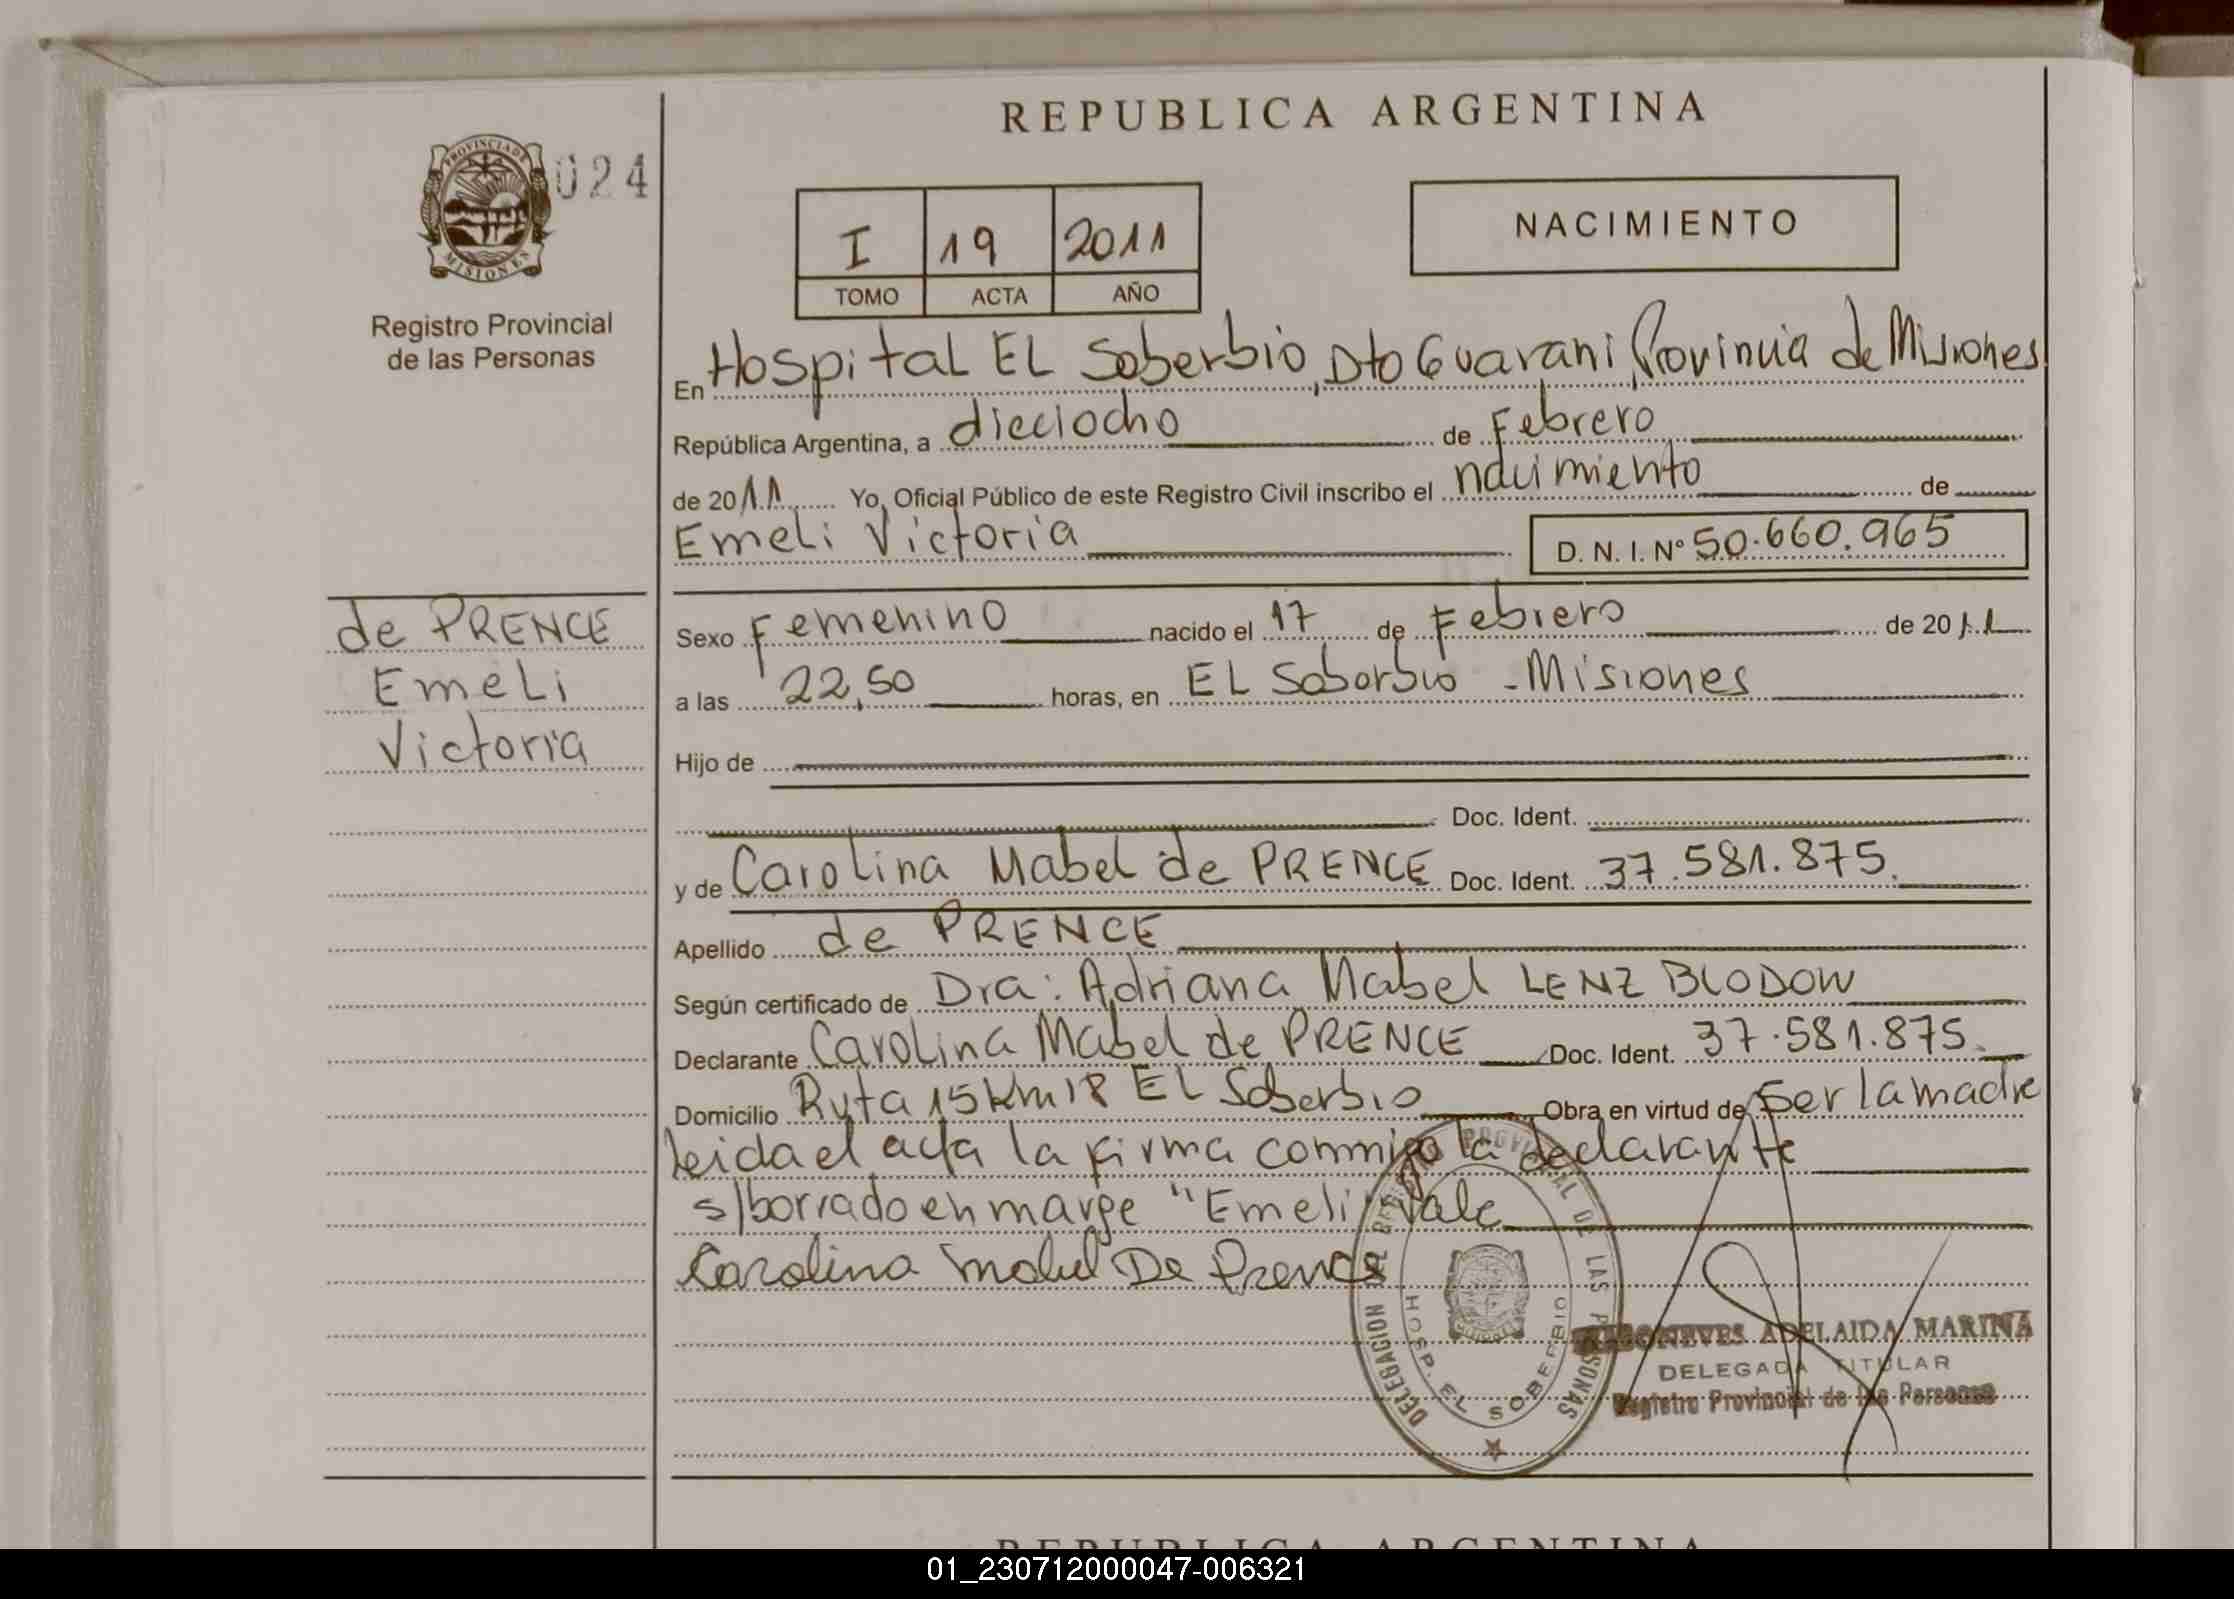 REPUBLICA ARGENTINA
PROVINCIA DE
MISIONES
024
Registro Provincial
de las Personas
I 19 2011
TOMO ACTA AÑO
NACIMIENTO
En Hospital EL Soberbio, Dto Guarani Provincia de Misiones
República Argentina, a dieciocho de Febrero
de 2011 Yo, Oficial Público de este Registro Civil inscribo el nacimiento de
Emeli Victoria D. N. I. N° 50.660.965
de PRENCE
Emeli
Victoria
Sexo Femenino nacido el 17 de Febrero de 2011
a las 22,50 horas, en EL Soberbio - Misiones
Hijo de
Doc. Ident.
y de Carolina Mabel de PRENCE Doc. Ident. 37.581.875.
Apellido de PRENCE
Según certificado de Dra: Adriana Mabel LENZ BLODOW
Declarante Carolina Mabel de PRENCE Doc. Ident. 37.581.875.
Domicilio Ruta 15 Km 18 EL Soberbio Obra en virtud de Ser la madre
leida el acta la firma conmigo la declarante
s/borrado en marge "Emeli" Vale
Carolina mabel De Prence
DELEGACION DEL REGISTRO PROVINCIAL DE LAS PERSONAS
HOSP. EL SOBERBIO
ADELAIDA MARINA
DELEGADA TITULAR
Registro Provincial de las Personas
REPUBLICA ARGENTINA
01_230712000047-006321